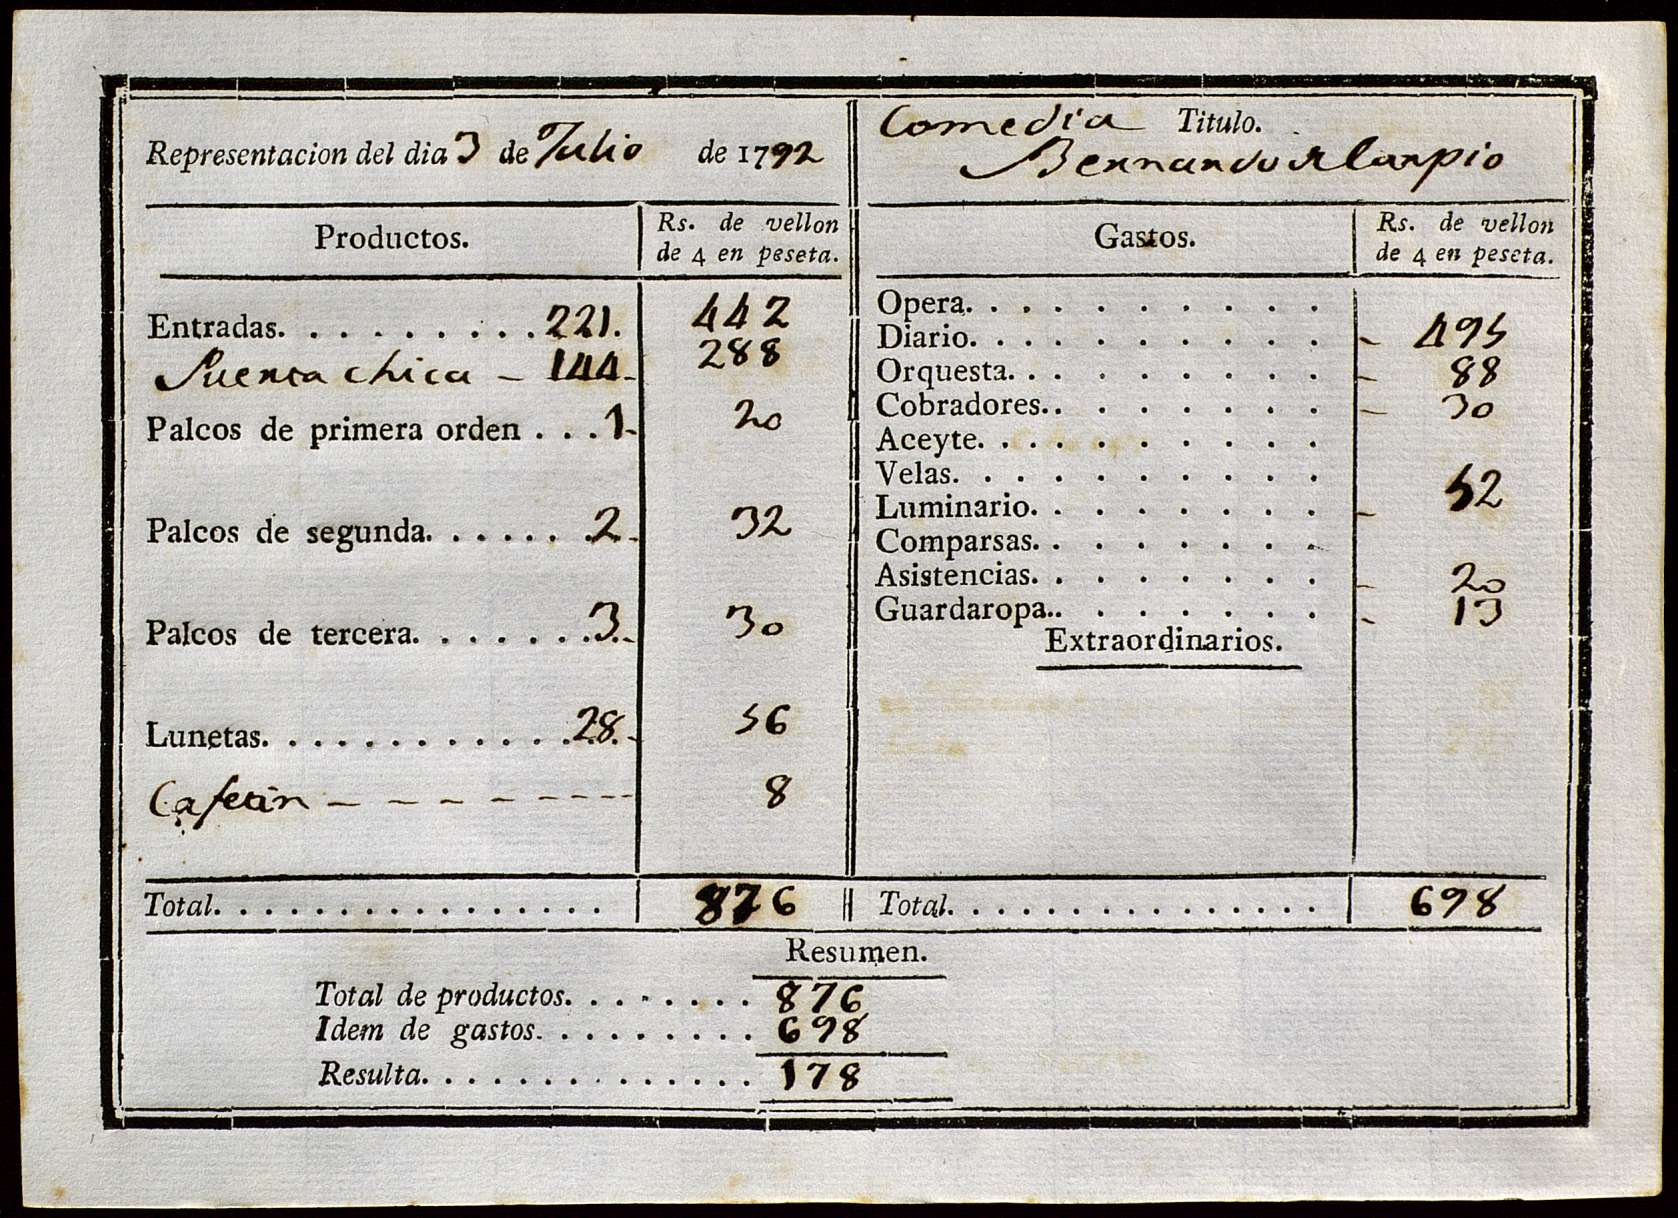 Representacion del dia 3 de Julio de 1792
Comedia Titulo.
Bernardo del Carpio
Productos. Rs. de vellon de 4 en peseta.
Entradas. . . . . . . . . . 221. 442
Puerta chica - 144 - 288
Palcos de primera orden . . . 1 - 20
Palcos de segunda. . . . . . . 2 - 32
Palcos de tercera. . . . . . . . 3. - 30
Lunetas. . . . . . . . . . . . . 28. - 56
Cafetin - - - - - - - - - 8
Total. . . . . . . . . . . . . . . . 876
Gastos. Rs. de vellon de 4 en peseta.
Opera. . . . . . . . . .
Diario. . . . . . . . . . - 495
Orquesta. . . . . . . . . - 88
Cobradores.. . . . . . . . - 30
Aceyte. . . . . . . . . .
Velas. . . . . . . . . .
Luminario. . . . . . . . - 52
Comparsas. . . . . . . .
Asistencias. . . . . . . . - 20
Guardaropa.. . . . . . . - 13
Extraordinarios.
Total. . . . . . . . . . . . . . . 698
Resumen.
Total de productos. . . . . . . . 876
Idem de gastos. . . . . . . . . 698
Resulta. . . . . . . . . . . . . . 178